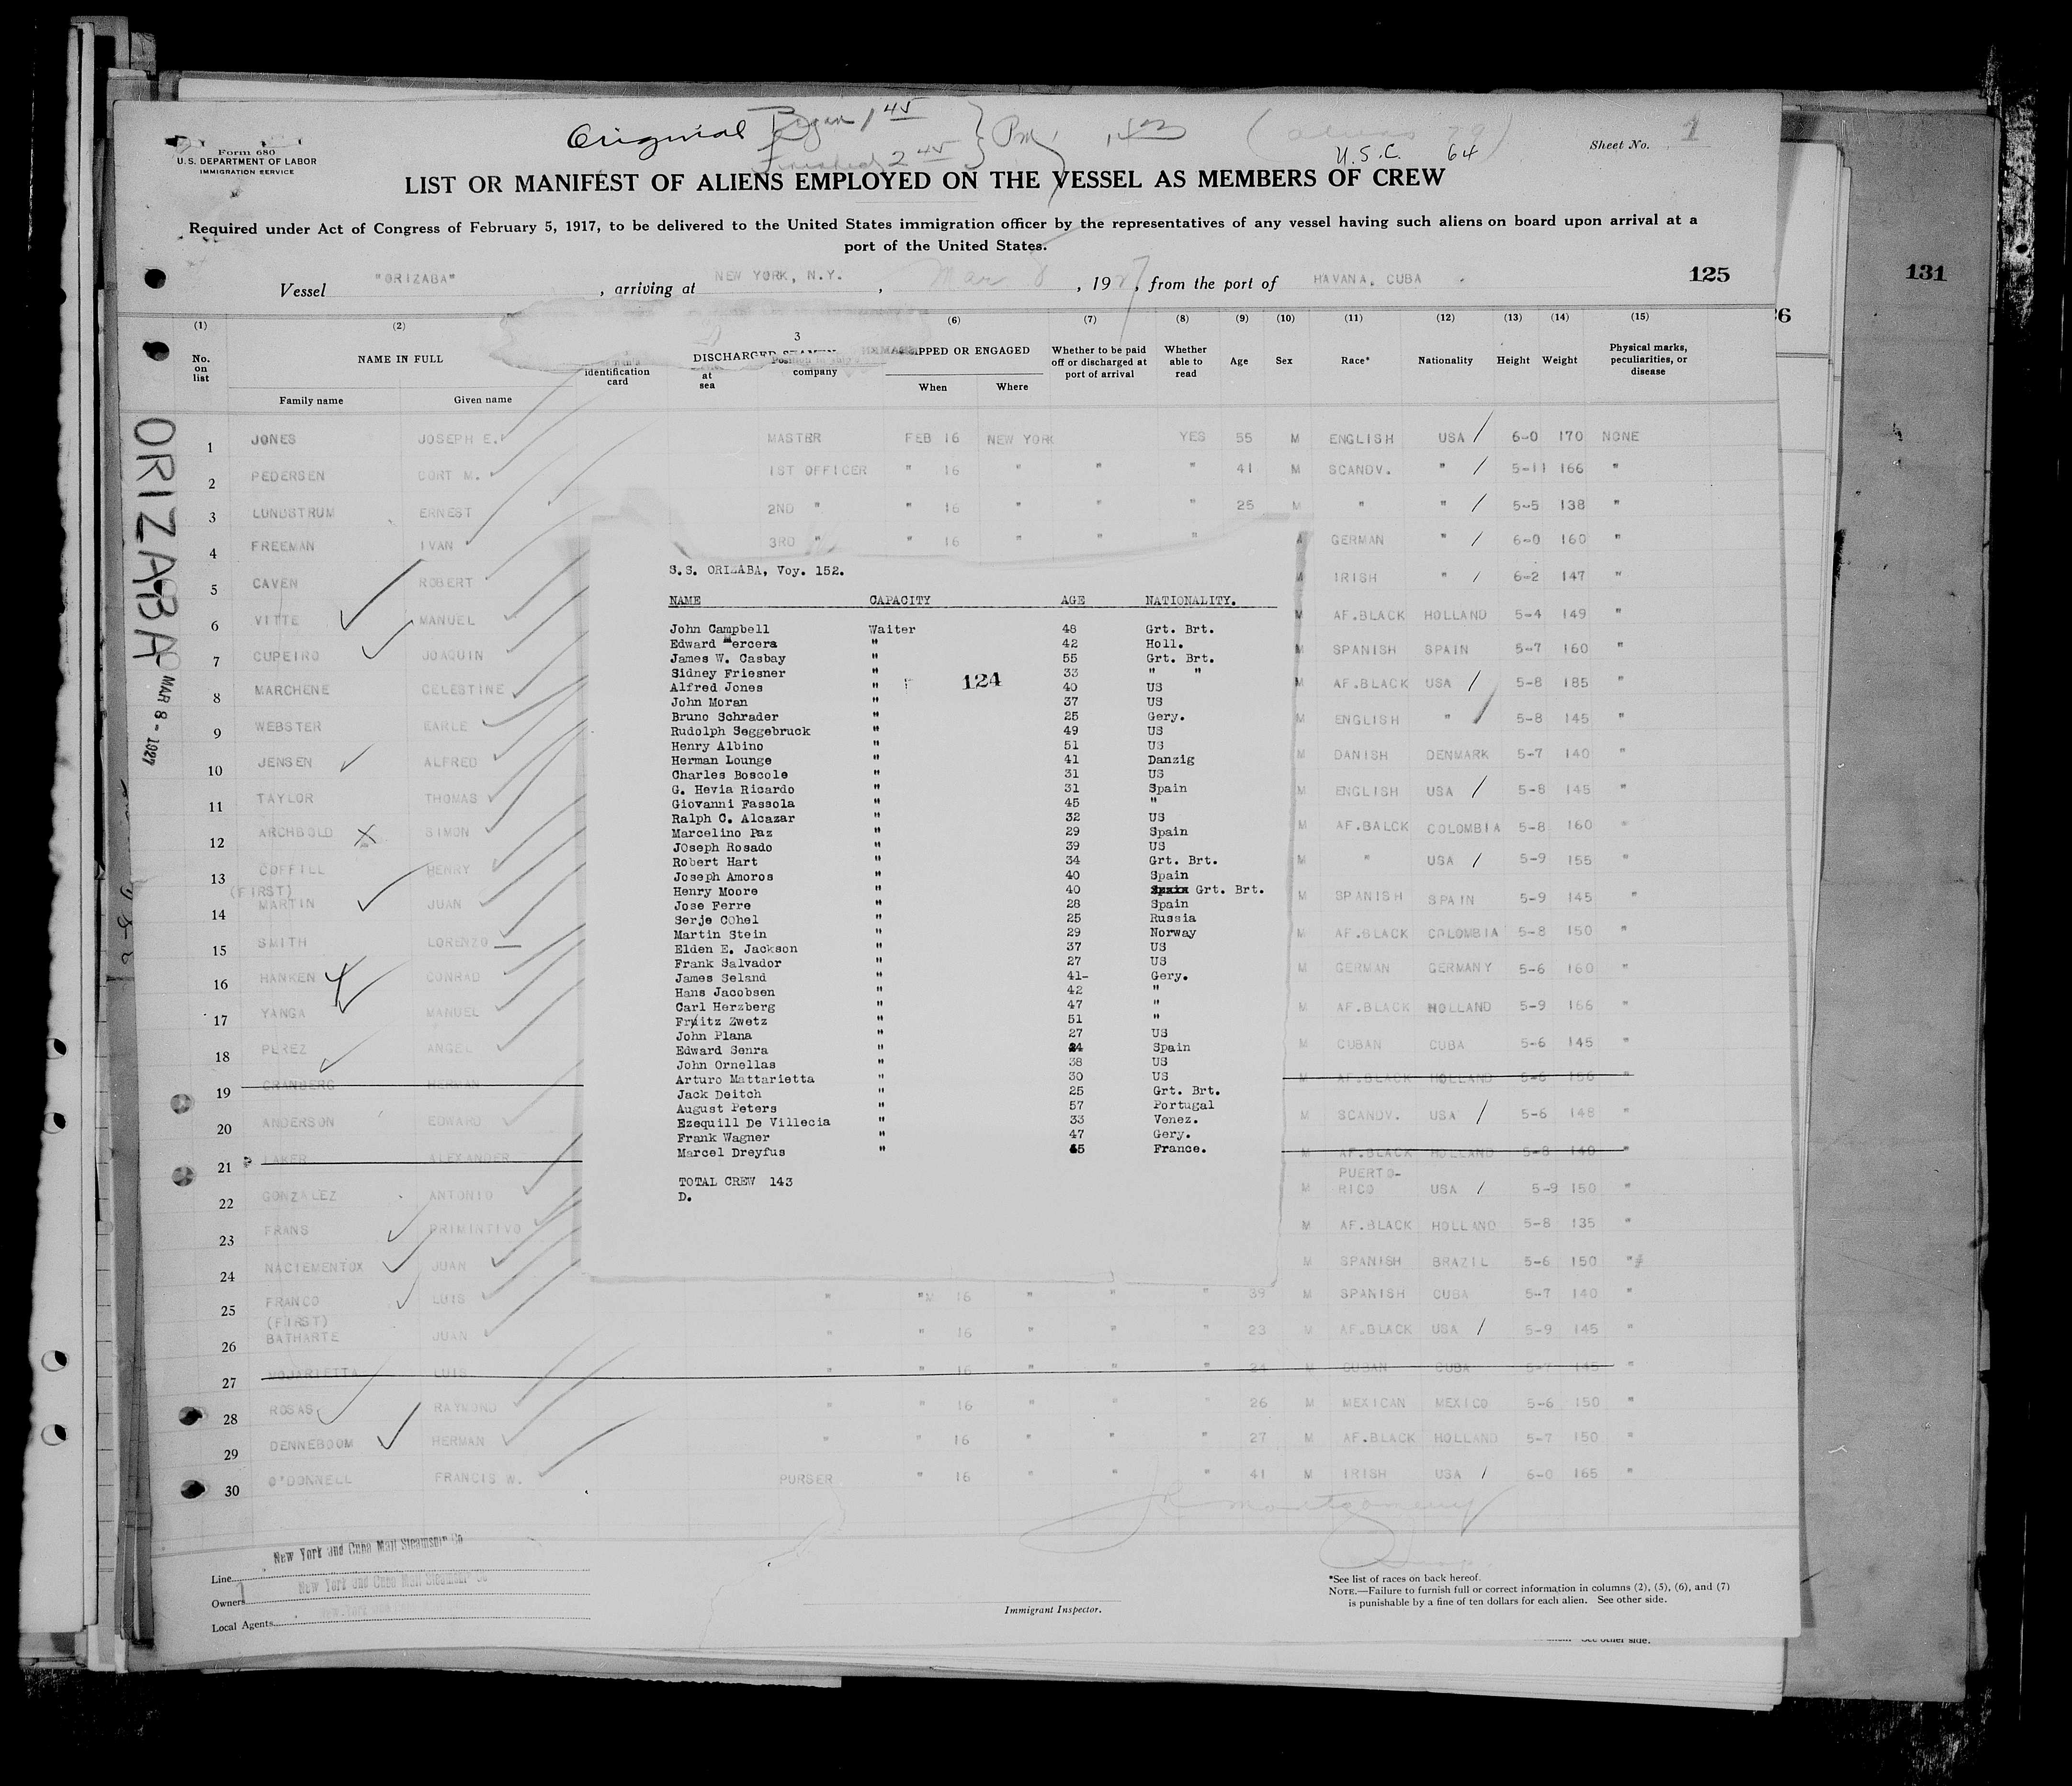 Original Began 1 45 } Pm, (aliens 79)
Finished 2 45 U.S.C. 64
Form 680
U.S. DEPARTMENT OF LABOR
IMMIGRATION SERVICE
Sheet No. 1
LIST OR MANIFEST OF ALIENS EMPLOYED ON THE VESSEL AS MEMBERS OF CREW
Required under Act of Congress of February 5, 1917, to be delivered to the United States immigration officer by the representatives of any vessel having such aliens on board upon arrival at a
port of the United States.
Vessel "ORIZABA", arriving at NEW YORK, N.Y., Mar 8, 1927, from the port of HAVANA, CUBA 125
131
(1) (2) 3 (6) (7) (8) (9) (10) (11) (12) (13) (14) (15)
No. on list NAME IN FULL identification card at sea company SHIPPED OR ENGAGED Whether to be paid off or discharged at port of arrival Whether able to read Age Sex Race* Nationality Height Weight Physical marks, peculiarities, or disease
Family name Given name When Where
ORIZABA MAR 8 - 1927
1 JONES JOSEPH E. MASTER FEB 16 NEW YORK YES 55 M ENGLISH USA / 6-0 170 NONE
2 PEDERSEN CORT M. 1ST OFFICER " 16 " " " 41 M SCANDV. " / 5-11 166 "
3 LUNDSTRUM ERNEST 2ND " " 16 " " " 25 M " " / 5-5 138 "
4 FREEMAN IVAN 3RD " " 16 " " " GERMAN " / 6-0 160 "
5 CAVEN ROBERT M IRISH " / 6-2 147 "
6 VITTE MANUEL M AF.BLACK HOLLAND 5-4 149 "
7 CUPEIRO JOAQUIN M SPANISH SPAIN 5-7 160 "
8 MARCHENE CELESTINE M AF.BLACK USA / 5-8 185 "
9 WEBSTER EARLE M ENGLISH " / 5-8 145 "
10 JENSEN ALFRED M DANISH DENMARK 5-7 140 "
11 TAYLOR THOMAS M ENGLISH USA / 5-8 145 "
12 ARCHBOLD SIMON M AF.BALCK COLOMBIA 5-8 160 "
13 COFFILL HENRY M " USA / 5-9 155 "
(FIRST)
14 MARTIN JUAN M SPANISH SPAIN 5-9 145 "
15 SMITH LORENZO M AF.BLACK COLOMBIA 5-8 150 "
16 HANKEN CONRAD M GERMAN GERMANY 5-6 160 "
17 YANGA MANUEL M AF.BLACK HOLLAND 5-9 166 "
18 PEREZ ANGEL M CUBAN CUBA 5-6 145 "
19 CRANBERG HERMAN M AF.BLACK HOLLAND 5-6 156 "
20 ANDERSON EDWARD M SCANDV. USA / 5-6 148 "
21 LAKER ALEXANDER M AF.BLACK HOLLAND 5-8 140 "
22 GONZALEZ ANTONIO M PUERTO-RICO USA / 5-9 150 "
23 FRANS PRIMINTIVO M AF.BLACK HOLLAND 5-8 135 "
24 NACIEMENTOX JUAN M SPANISH BRAZIL 5-6 150 "
25 FRANCO LUIS " " 16 " " " 39 M SPANISH CUBA 5-7 140 "
(FIRST)
26 BATHARTE JUAN " " 16 " " " 23 M AF.BLACK USA / 5-9 145 "
27 MOJARIETTA LUIS " " 16 " " " 24 M CUBAN CUBA 5-7 145 "
28 ROSAS RAYMOND " " 16 " " " 26 M MEXICAN MEXICO 5-6 150 "
29 DENNEBOOM HERMAN " " 16 " " " 27 M AF.BLACK HOLLAND 5-7 150 "
30 O'DONNELL FRANCIS W. PURSER " 16 " " " 41 M IRISH USA / 6-0 165 "
S.S. ORIZABA, Voy. 152.
NAME CAPACITY AGE NATIONALITY.
John Campbell Waiter 48 Grt. Brt.
Edward Mercera " 42 Holl.
James W. Casbay " 55 Grt. Brt.
Sidney Friesner " 33 " "
124
Alfred Jones " 40 US
John Moran " 37 US
Bruno Schrader " 25 Gery.
Rudolph Seggebruck " 49 US
Henry Albino " 51 US
Herman Lounge " 41 Danzig
Charles Boscole " 31 US
G. Hevia Ricardo " 31 Spain
Giovanni Fassola " 45 "
Ralph C. Alcazar " 32 US
Marcelino Paz " 29 Spain
JOseph Rosado " 39 US
Robert Hart " 34 Grt. Brt.
Joseph Amoros " 40 Spain
Henry Moore " 40 Spain Grt. Brt.
Jose Ferre " 28 Spain
Serje COhel " 25 Russia
Martin Stein " 29 Norway
Elden E. Jackson " 37 US
Frank Salvador " 27 US
James Seland " 41- Gery.
Hans Jacobsen " 42 "
Carl Herzberg " 47 "
Fritz Zwetz " 51 "
John Plana " 27 US
Edward Senra " 24 Spain
John Ornellas " 38 US
Arturo Mattarietta " 30 US
Jack Deitch " 25 Grt. Brt.
August Peters " 57 Portugal
Ezequill De Villecia " 33 Venez.
Frank Wagner " 47 Gery.
Marcel Dreyfus " 45 France.
TOTAL CREW 143
D.
J R Montgomery
Line New York and Cuba Mail Steamship Co
Owners New York and Cuba Mail Steamship Co
Local Agents
Immigrant Inspector.
*See list of races on back hereof.
NOTE.—Failure to furnish full or correct information in columns (2), (5), (6), and (7)
is punishable by a fine of ten dollars for each alien. See other side.